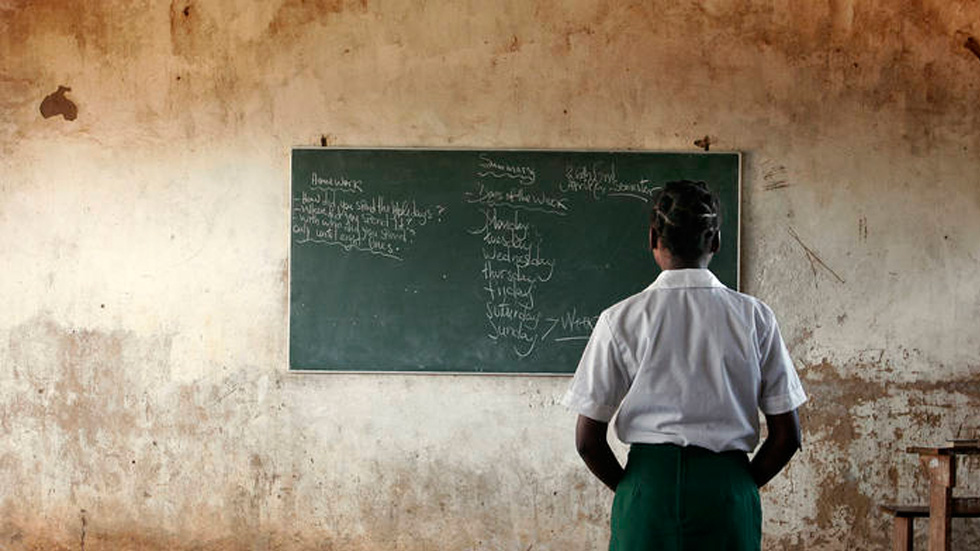 Home Work
- How did you spend the holydays?
- Where did you spend it?
- With who did you spend?
only until eight lines.
Summary
Days of the Week
Monday
tuesday
wednesday
thursday
friday
saturday
Sunday